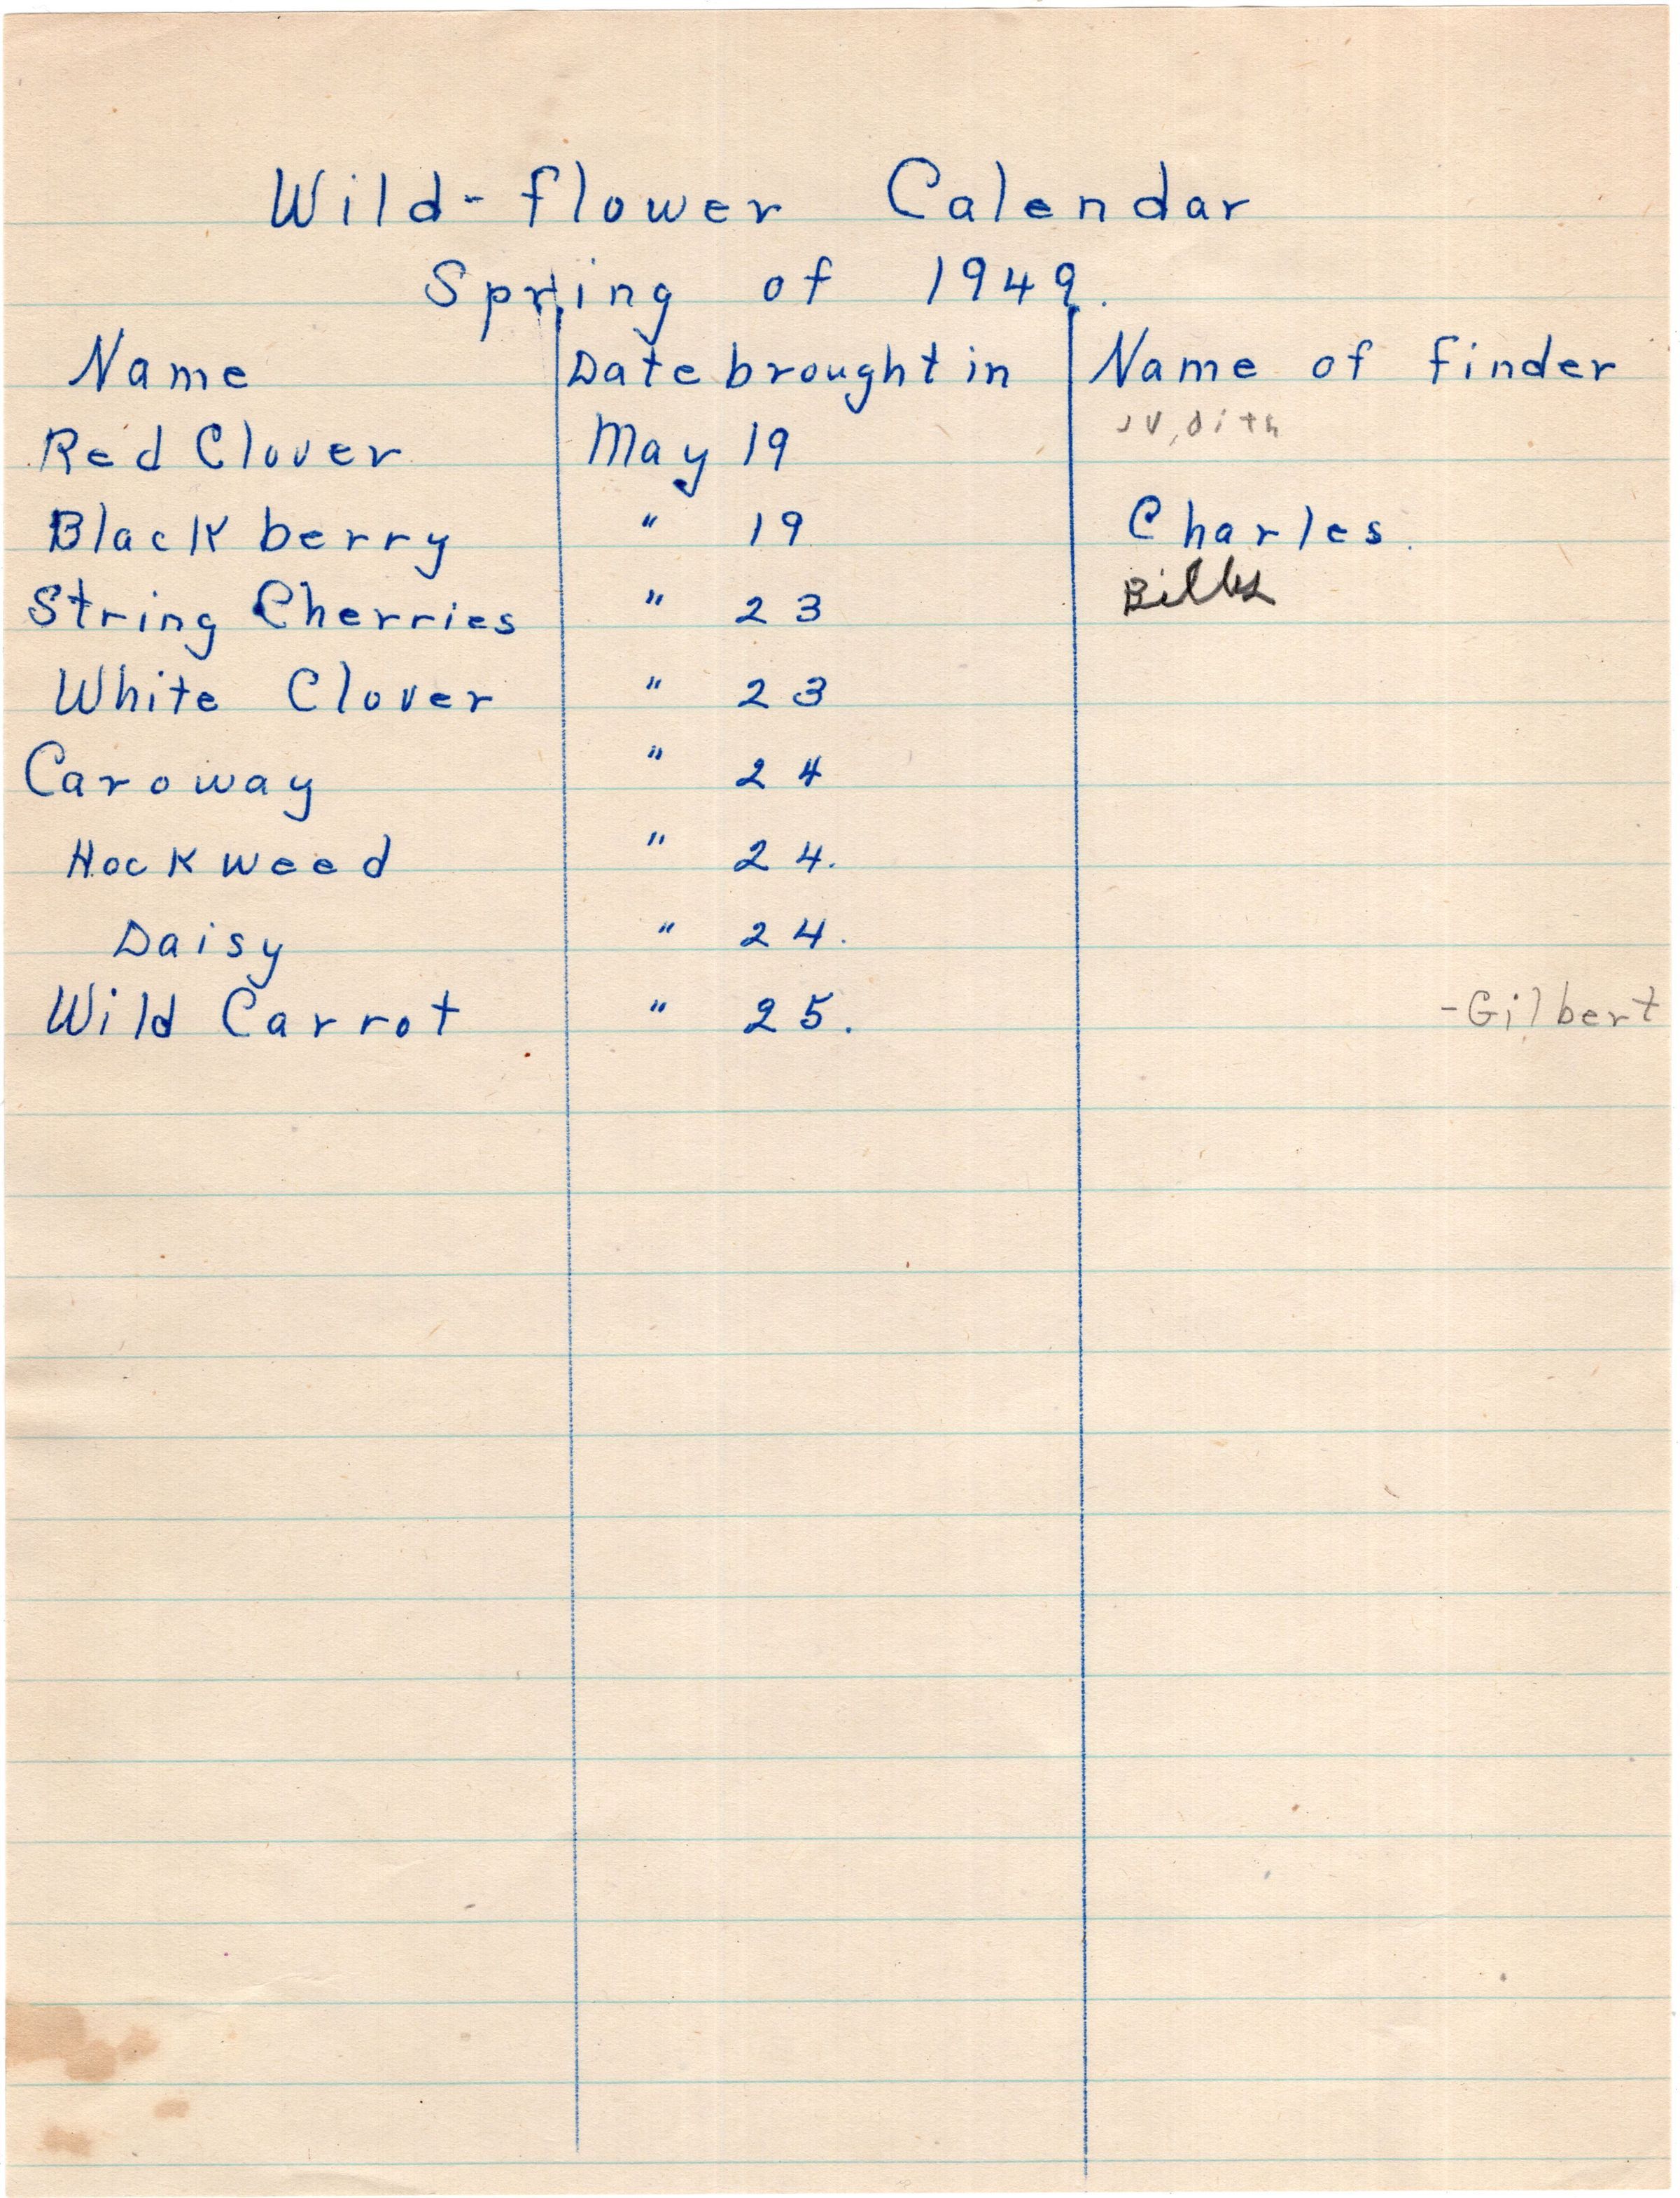 Wild-flower Calendar
Spring of 1949.
Name Date brought in Name of finder
Red Clover May 19 Judith
Blackberry " 19 Charles.
String Cherries " 23 Billy
White Clover " 23
Caroway " 24
Hockweed " 24.
Daisy " 24.
Wild Carrot " 25. -Gilbert